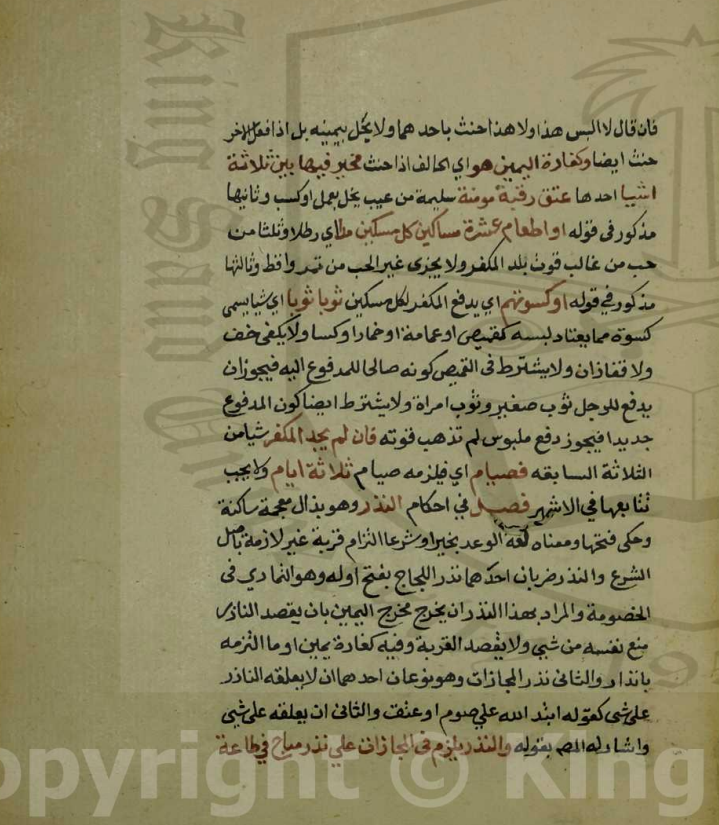 فان قال لا البس هذا ولا هذا حنث باحدهما ولا يخل بيمينه بل اذا فعل الاخر
حنث ايضا وكفارة اليمين هو اي الحالف اذا حنث مخير فيها بين ثلاثة
اشيا احدها عتق رقبة مومنة سليمة من عيب يخل بعمل او كسب وثانيها
مذكور في قوله او اطعام عشرة مساكين كل مسكين مدا اي رطلا وثلثا من
حب من غالب قوت بلد المكفر ولا يجزى غير الحب من تمر واقط وثالثها
مذكور في قوله او كسوتهم اي يدفع المكفر لكل مسكين ثوبا ثوبا اي شيا يسمى
كسوة مما يعتاد لبسه كقميص او عمامة او خمار او كسا ولا يكفي خف
ولا قفازان ولا يشترط في القميص كونه صالحا للمدفوع اليه فيجوز ان
يدفع للرجل ثوب صغير وثوب امراة ولا يشترط ايضا كون المدفوع
جديدا فيجوز دفع ملبوس لم تذهب قوته فان لم يجد المكفر شيا من
الثلاثة السابقه فصيام اي فيلزمه صيام ثلاثة ايام ولا يجب
تتابعها في الاشهر فصل في احكام النذر وهو بذال معجمة ساكنة
وحكي فتحها ومعناه لغة الوعد بخير او شر وشرعا التزام قربة غير لازمة باصل
الشرع والنذر ضربان احدهما نذر اللجاج بفتح اوله وهو التمادي في
الخصومة والمراد بهذا النذر ان يخرج مخرج اليمين بان يقصد الناذر
منع نفسه من شي ولا يقصد القربة وفيه كفارة يمين او ما التزمه
بالنذر والثاني نذر المجازات وهو نوعان احدهما ان لا يعلقه الناذر
على شي كقوله ابتدا لله علي صوم او عتق والثاني ان يعلقه على شي
واشار له المص بقوله والنذر يلزم في المجازات علي نذر مباح في طاعة
opyright © King
King Saud Un